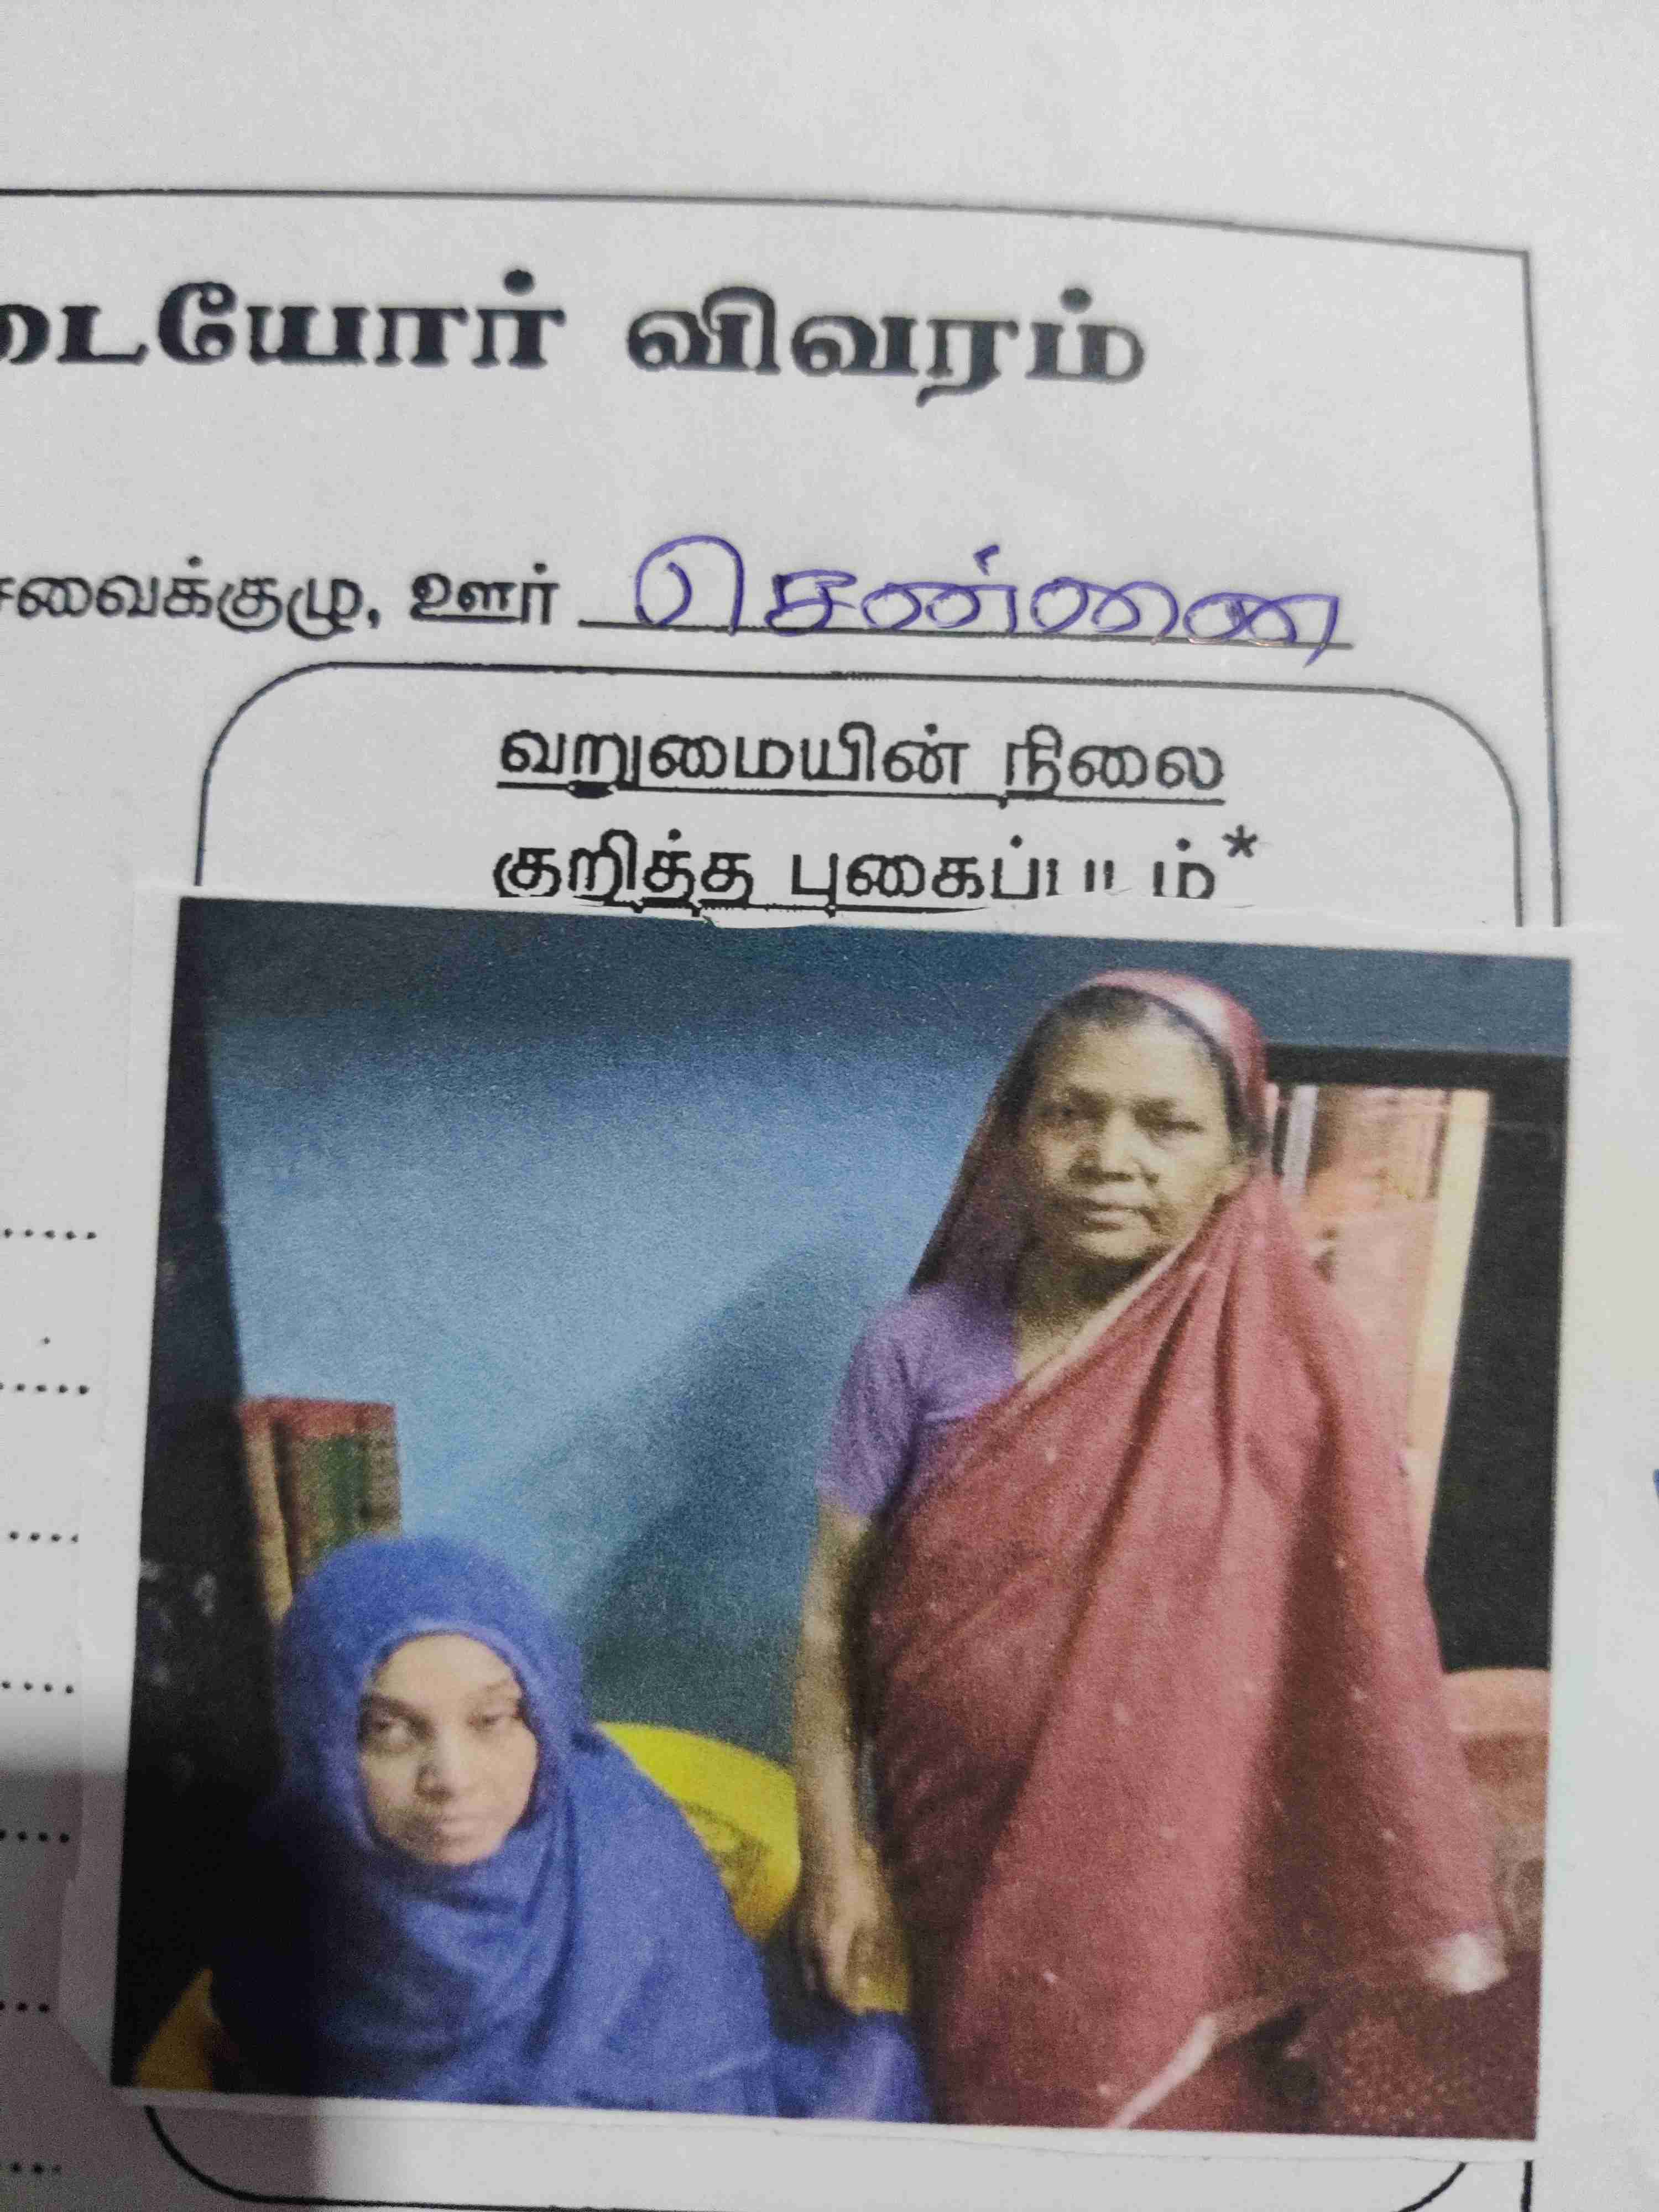 டையோர் விவரம்
சவைக்குழு, ஊர் சென்னை
வறுமையின் நிலை
குறித்த புகைப்படம்*